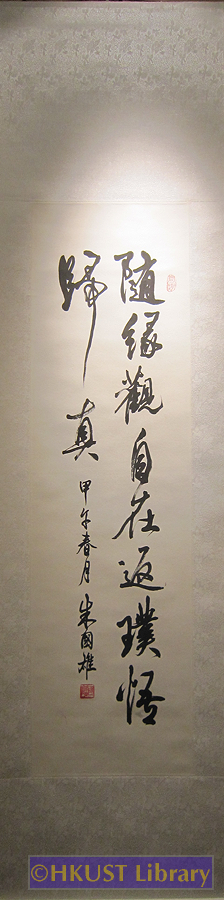 隨緣觀自在返璞悟
歸真
甲午春月 朱國雄
©HKUST Library